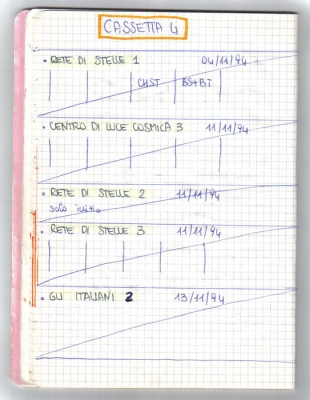 CASSETTA 4
• RETE DI STELLE 1 04/11/94
CHST BS+BT
• CENTRO DI LUCE COSMICA 3 11/11/94
• RETE DI STELLE 2 11/11/94
solo inizio
• RETE DI STELLE 3 11/11/94
• GLI ITALIANI 2 13/11/94